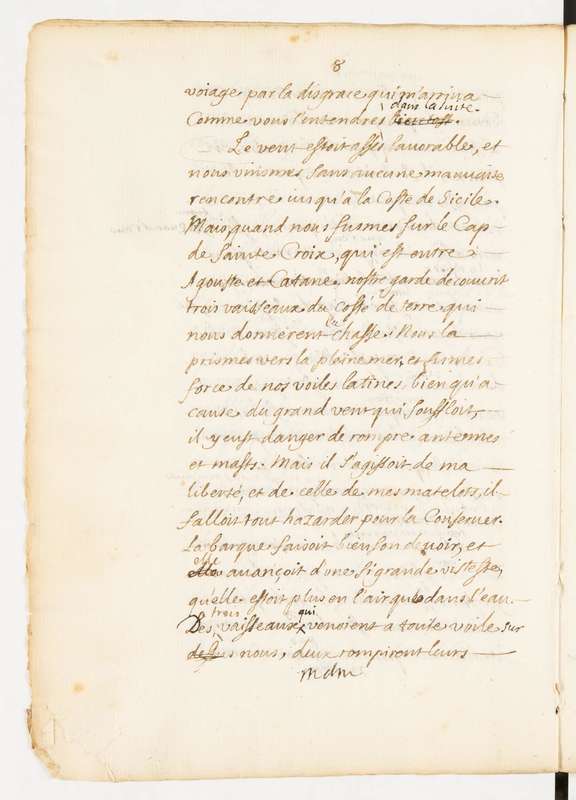 8
voiage par la disgrace qui m'arriua
dans la suite.
Comme vous l'entendres bien tost.
Le vent estoit assés fauorable, et
nous vinsmes sans aucune mauuaise
rencontre iusqu'à la Coste de Sicile.
Mais quand nous fusmes sur le Cap
de Sainte Croix, qui est entre
Agouste et Catane, nostre garde découurit
trois vaisseaux du costé de terre qui
nous donnérent la chasse: Nous la
prismes vers la pleine mer, et fismes
force de nos voiles latines, bien qu'a
cause du grand vent qui souffloit,
il y eust danger de rompre antennes
et masts. Mais il s'agissoit de ma
liberté, et de celle de mes matelots, il
falloit tout hazarder pour la Conseruer.
La barque faisoit bien son deuoir, et
elle auançoit d'une si grande vistesse,
qu'elle estoit plus en l'air que dans l'eau.
trois qui
Des vaisseaux venoient a toute voile sur
nous, deux rompirent leurs